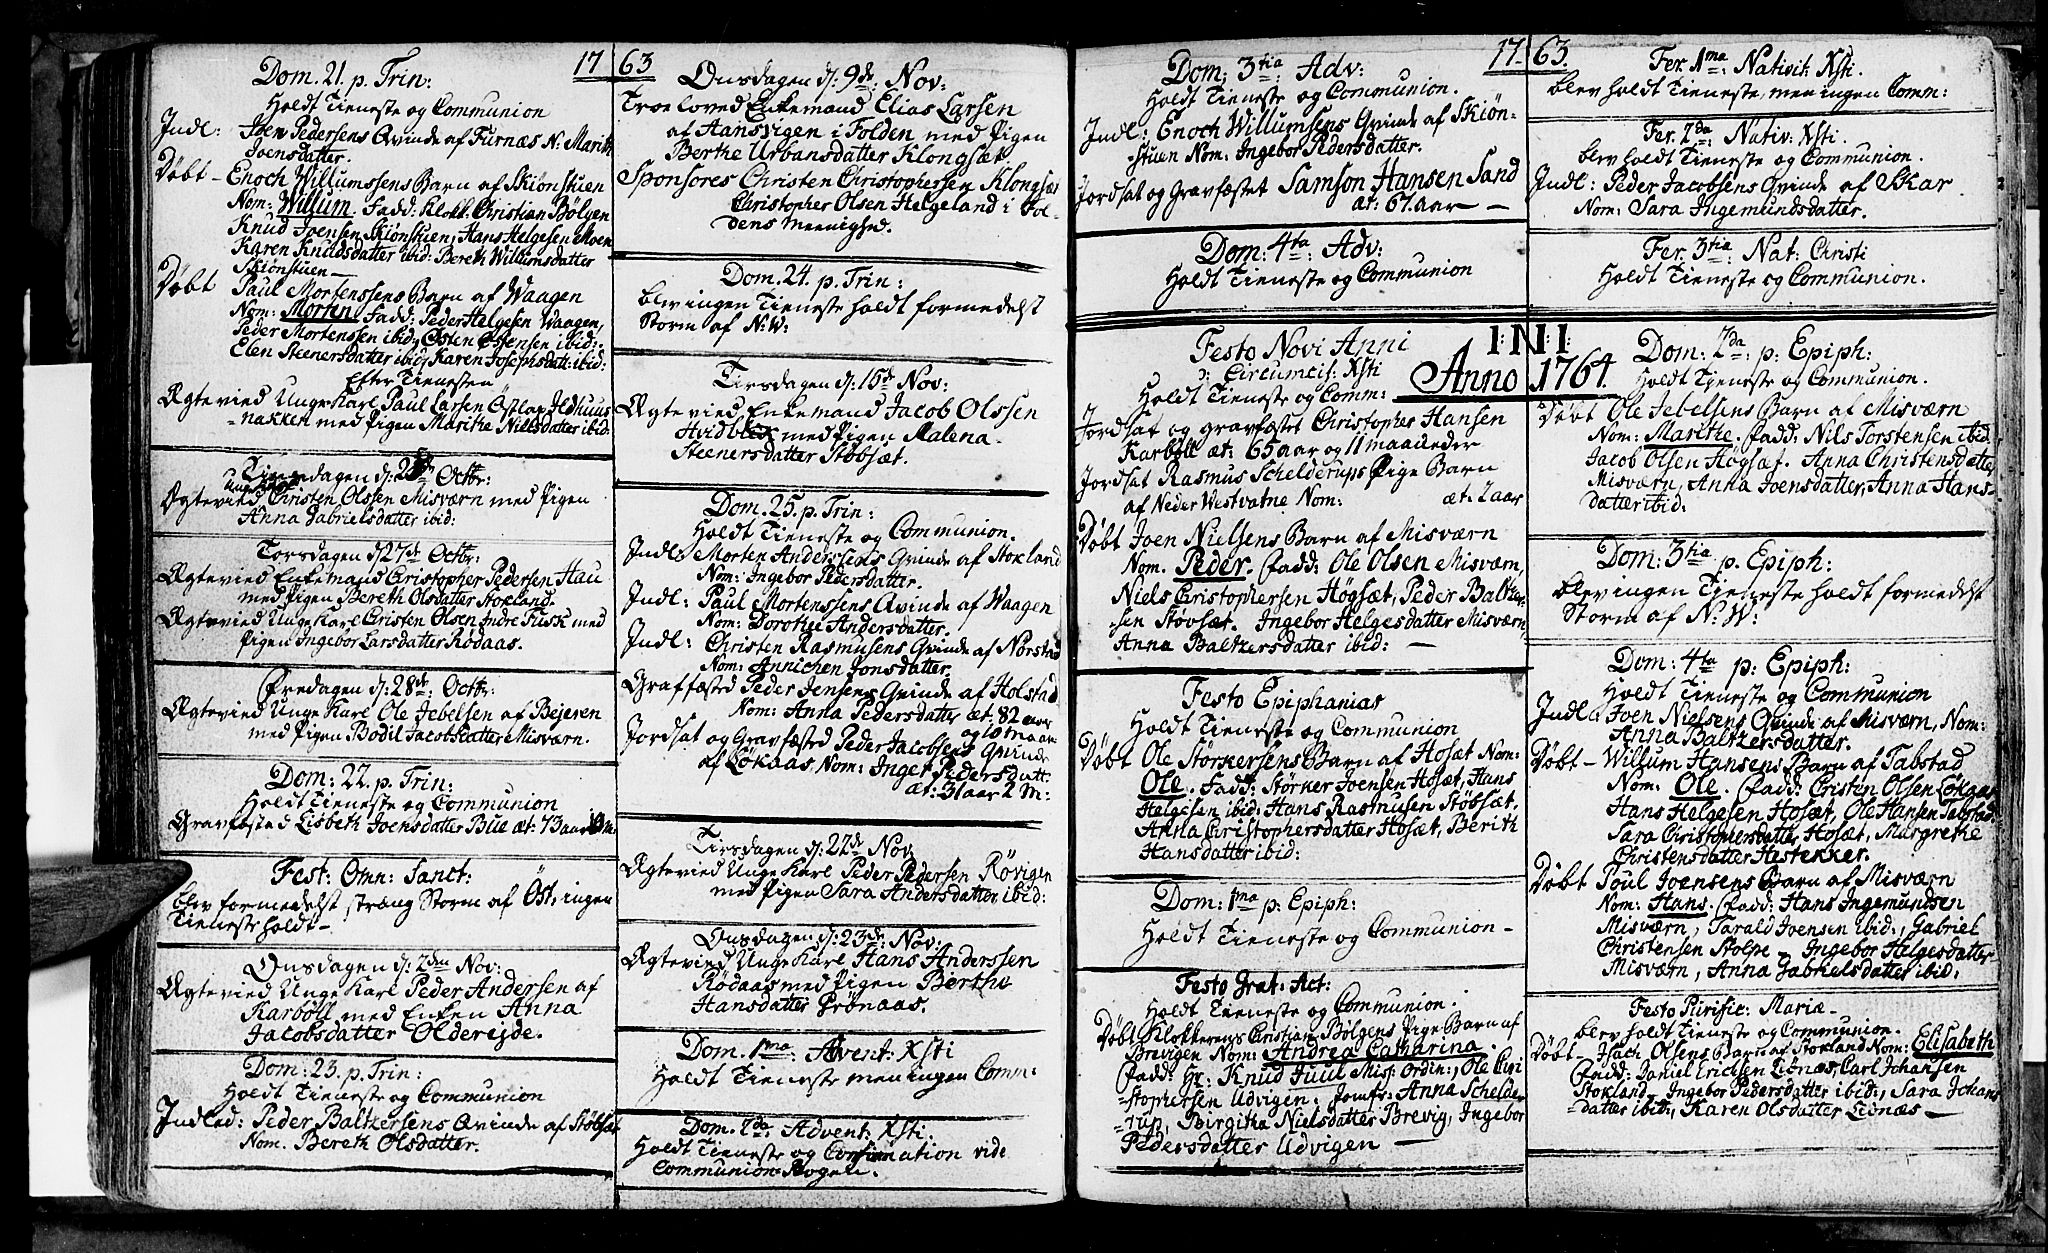 17 63
Dom. 21. p. Trin:
Holdt Tieneste og Communion
Indl: Joen Pedersens Qvinde af Furnæs N: Marith
Joensdatter.
Døbt - Enoch Willumssens Barn af Skiønstuen
Nom: Willum. Fadd: Klokk. Christian Bølgen
Knud Joensen Skiønstuen, Hans Helgesen Moen
Karen Knudsdatter ibid: Bereth Willumsdatter
Skiønstuen -
Døbt Paul Mortenssens Barn af Waagen
Nom: Morten. Fadd: Peder Helgesen Waagen,
Peder Mortenssen ibid, Østen Østensen ibid:
Elen Steenersdatter ibid, Karen Josephsdatt: ibid:
Efter Tienesten
Ægtevied Unge Karl Paul Larsen Østlap Ildhuus-
nakken med Pigen Marithe Nielsdatter ibid:
d: Octbr:
Unge Karl
Ægtevied Christen Olssen Misværn med Pigen
Anna Gabrielsdatter ibid:
Torsdagen d: 27de Octbr:
Ægtevied Enkemand Christopher Pedersen Hau
med Pigen Bereth Olsdatter Stokland.
Ægtevied Unge Karl Cristen Olsen Indre Fusk med
Pigen Ingebor Larsdatter Rødaas.
Fredagen d: 28de: Octbr:
Ægtevied Unge Karl Ole Jebelsen af Bejeren
med Pigen Bodil Jacobsdatter Misværn.
Dom: 22. p. Trin:
Holdt Tieneste og Communion
Gravfæsted Lisbeth Joensdatter Bue æt: 73 aar 10 m:
Fest: Omn: Sanct:
blev formedelst stræng Storm af Öst, ingen
Tieneste holdt -
Onsdagen d: 2den Nov:
Ægtevied Unge Karl Peder Andersen af
Karbøll med Enken Anna
Jacobsdatter Oldereide.
Dom: 23. p. Trin:
Holdt Tieneste og Communion
Indled: Peder Baltzersens Qvinde af Støbset
Nom. Bereth Olsdatter.
Onsdagen d: 9de: Nov:
Troeloved Enkemand Elias Larsen
af Aansvigen i Folden med Pigen
Berthe Urbansdatter Klongsæt.
Sponsores Christen Christophersen Klongsæt
Christopher Olsen Helgeland i Fol-
dens Meenighed.
Dom. 24. p. Trin:
blev ingen Tieneste holdt formedelst
Storm af N:W:
Tirsdagen d: 15de Nov:
Ægtevied Enkemand Jacob Olssen
med Pigen Malena
Steenersdatter Støbsæt.
Dom. 25. p. Trin:
Holdt Tieneste og Communion.
Indl: Morten Anderssens Qvinde af Stokland
Nom: Ingebor Pedersdatter.
Indl: Paul Mortenssens Qvinde af Waagen
Nom: Dorothe Andersdatter.
Indl: Christen Rasmusens Qvinde af Norstad
Nom: Annichen Jonsdatter.
Graffæsted Peder Jensens Qvinde af Holstad
Nom: Anna Pedersdatter æt. 82 aar
og 10 maan
Jordsat og Gravfæsted Peder Jacobsens Qvinde
af Løkaas, Nom: Inger Pedersdatt:
æt: 31 aar 2 M:
Tirsdagen d: 22de Nov.
Ægtevied Unge Karl Peder Pedersen Røvigen
med Pigen Sara Andersdatter ibid:
Onsdagen d: 23de: Nov:
Ægtevied Unge Karl Hans Anderssen
Rødaas med Pigen Berthe
Hansdatter Grønaas.
Dom. 1ma: Advent: Xsti
Holdt Tieneste men ingen Comm:
Dom. 2da: Advent: Xsti.
Holdt Tieneste og Confirmation vide
Communion-Bogen.
17 63.
Dom: 3tia: Adv:
Holdt Tieneste og Communion.
Indl: Enoch Willumsens Qvinde af Skiøn-
stuen Nom: Ingebor Pedersdatter.
Jordsat og Gravfæstet Samson Hansen Sand
æt: 67. aar -
Dom: 4ta: Adv:
Holdt Tieneste og Communion
I: N: I:
Anno 1764.
Festo Novi Anni
d: Circumcis: Xsti
Holdt Tieneste og Comm:
Jordsat og gravfæstet Christopher Hansen
Karbøll æt: 65 aar og 11 maaneder
Jordsat Rasmus Schelderups Pige Barn
af Neder Westvatne Nom: æt: 2 aar
Døbt Joen Nielsens Barn af Misværn
Nom. Peder. Fadd: Ole Olsen Misværn,
Niels Cristophersen Høgsæt, Peder Baltzer-
sen Støvsæt. Ingebor Helgesdatter Misværn,
Anna Baltzersdatter ibid: -
Festo Epiphanias
Holdt Tieneste og Communion
Døbt Ole Størkersens Barn af Hosæt Nom:
Ole. Fadd: Størker Joensen Hosæt, Hans
Helgesen ibid: Hans Rasmusen Støbsæt,
Anna Christophersdatter Hosæt, Berith
Hansdatter ibid:
Dom: 1ma p: Epiph:
Holdt Tieneste og Communion -
Festo Grat: Act:
Holdt Tieneste og Communion.
Døbt Klokkerens Cristian Bølgens Pige Barn af
Brevigen Nom: Andrea Catharina.
Fadd: Hr: Knud Juul Miss: Ordin:, Ole Cri
stophersen Udvigen. Jomfr: Anna Schelde-
rup, Birgitha Nielsdatter Brevig, Ingebor
Pedersdatter Udvigen -
Fer. 1ma: Nativit: Xsti.
blev holdt Tieneste, men ingen Comm:
Fer. 2da: Nativ: Xsti.
blev holdt Tieneste og Communion.
Indl: Peder Jacobsens Qvinde af Skar
Nom: Sara Ingemundsdatter.
Fer. 3tia: Nat: Christi
Holdt Tieneste og Communion.
Dom: 2da: p: Epiph:
Holdt Tieneste og Communion.
Døbt Ole Jebelsens Barn af Misværn
Nom: Marithe. Fadd: Nils Torstensen ibid
Jacob Olsen Høgsæt. Anna Christensdatter
Misværn, Anna Joensdatter, Anna Hans-
datter ibid:
Dom: 3tia p. Epiph:
blev ingen Tieneste holdt formedelst
Storm af N:W:
Dom: 4ta p: Epiph:
Holdt Tieneste og Communion
Indl: Joen Nielsens Qvinde af Misværn, Nom:
Anna Baltzersdatter.
Døbt - Willum Hansens Barn af Tabstad
Nom: Ole. Fadd: Cristen Olsen Løkaas
Hans Helgesen Hosæt, Ole Hansen Tabstad
Sara Christophersdatter Hosæt, Margrethe
Christensdatter Hestekker.
Døbt Poul Joensens Barn af Misværn
Nom: Hans. Fadd: Hans Ingemundsen
Misværn, Tarald Joensen ibid:, Gabriel
Christensen Stolpe - Ingebor Helgesdatter
Misværn, Anna Gabrielsdatter ibid:
Festo Purific: Mariæ -
blev holdt Tieneste og Communion.
Døbt - Isach Olsens Barn af Stokland Nom: Elisabeth
Fadd: Daniel Ericksen Lionæs, Carl Johansen
Stokland, Ingebor Pedersdatter ibid:, Sara Johans
datter ibid:, Karen Olsdatter Lionæs -